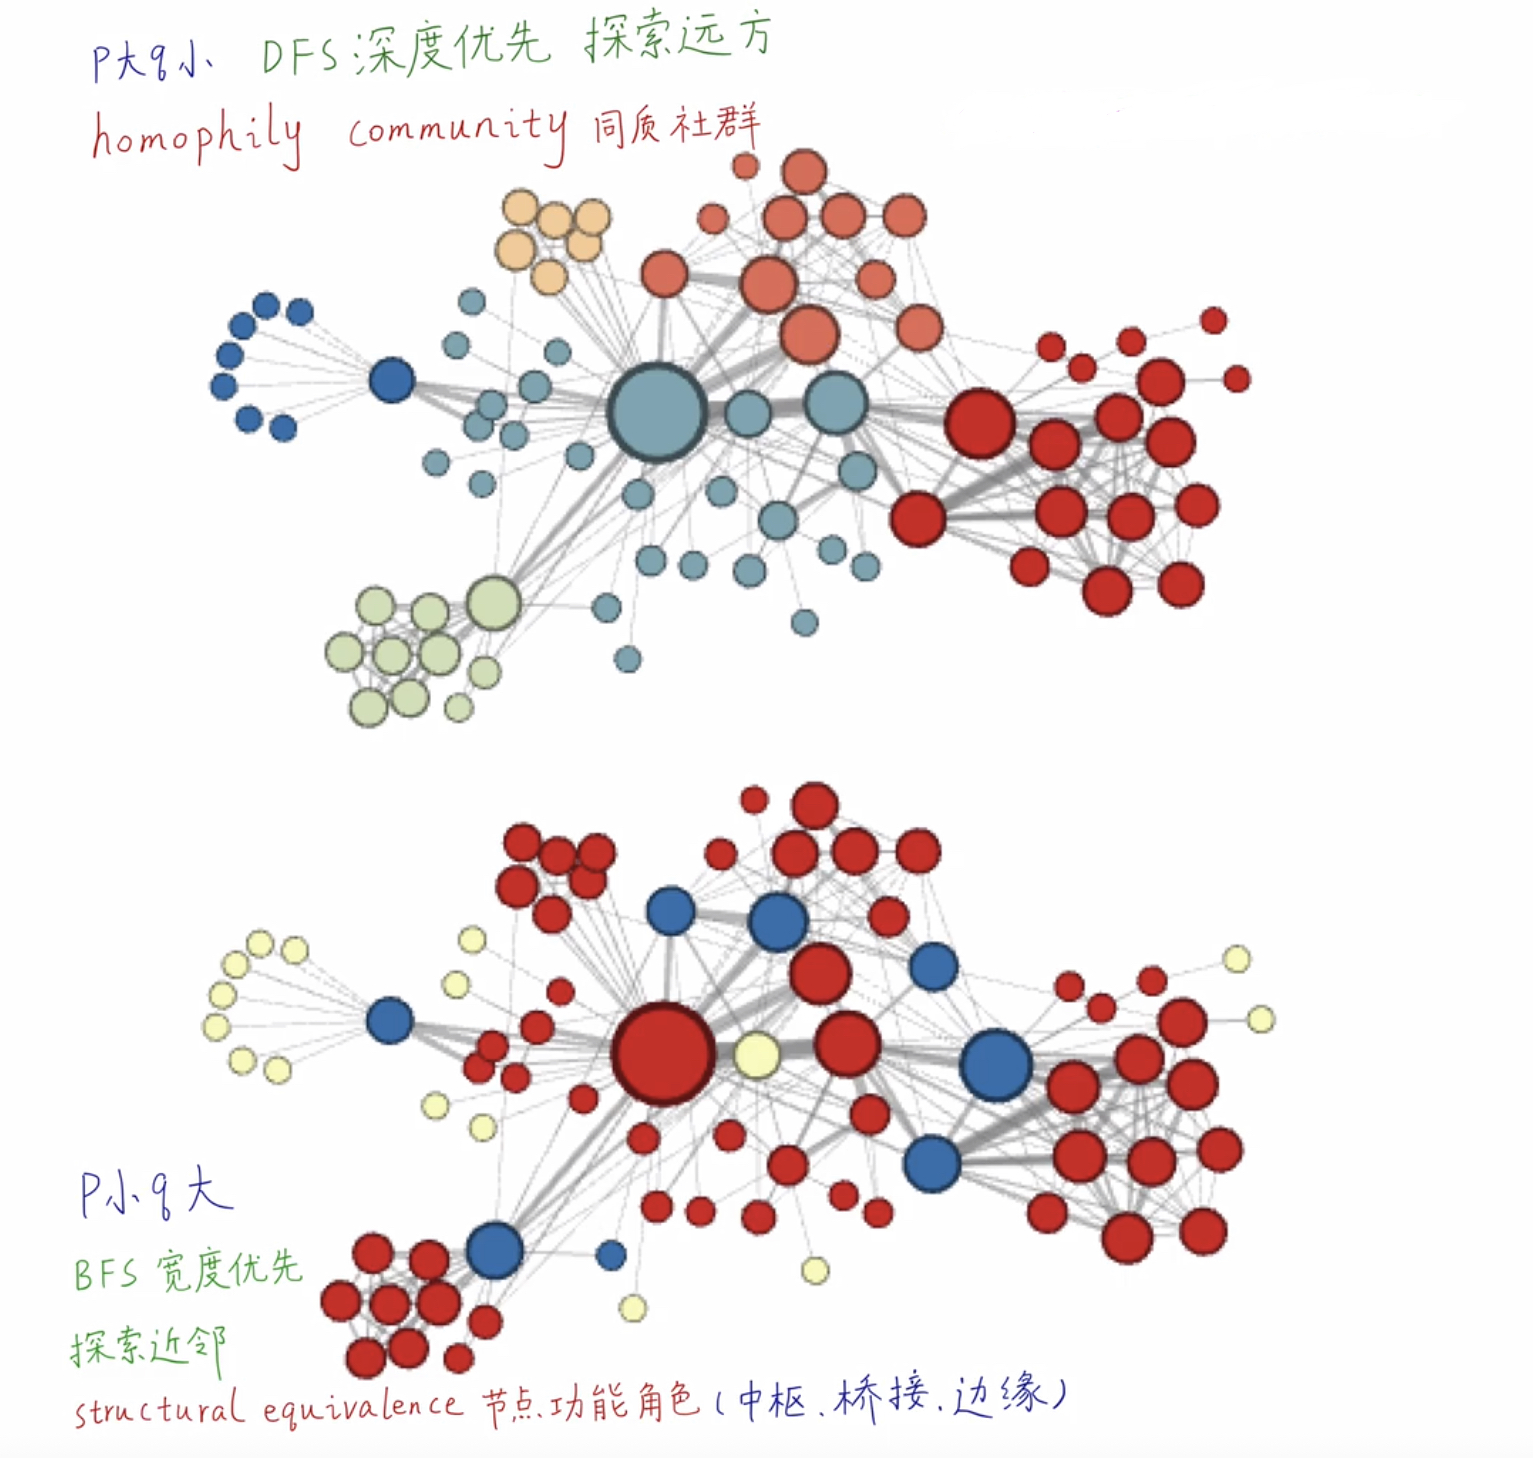 P大q小 DFS:深度优先 探索远方
homophily community 同质社群
P小q大
BFS 宽度优先
探索近邻
structural equivalence 节点功能角色(中枢、桥接、边缘)